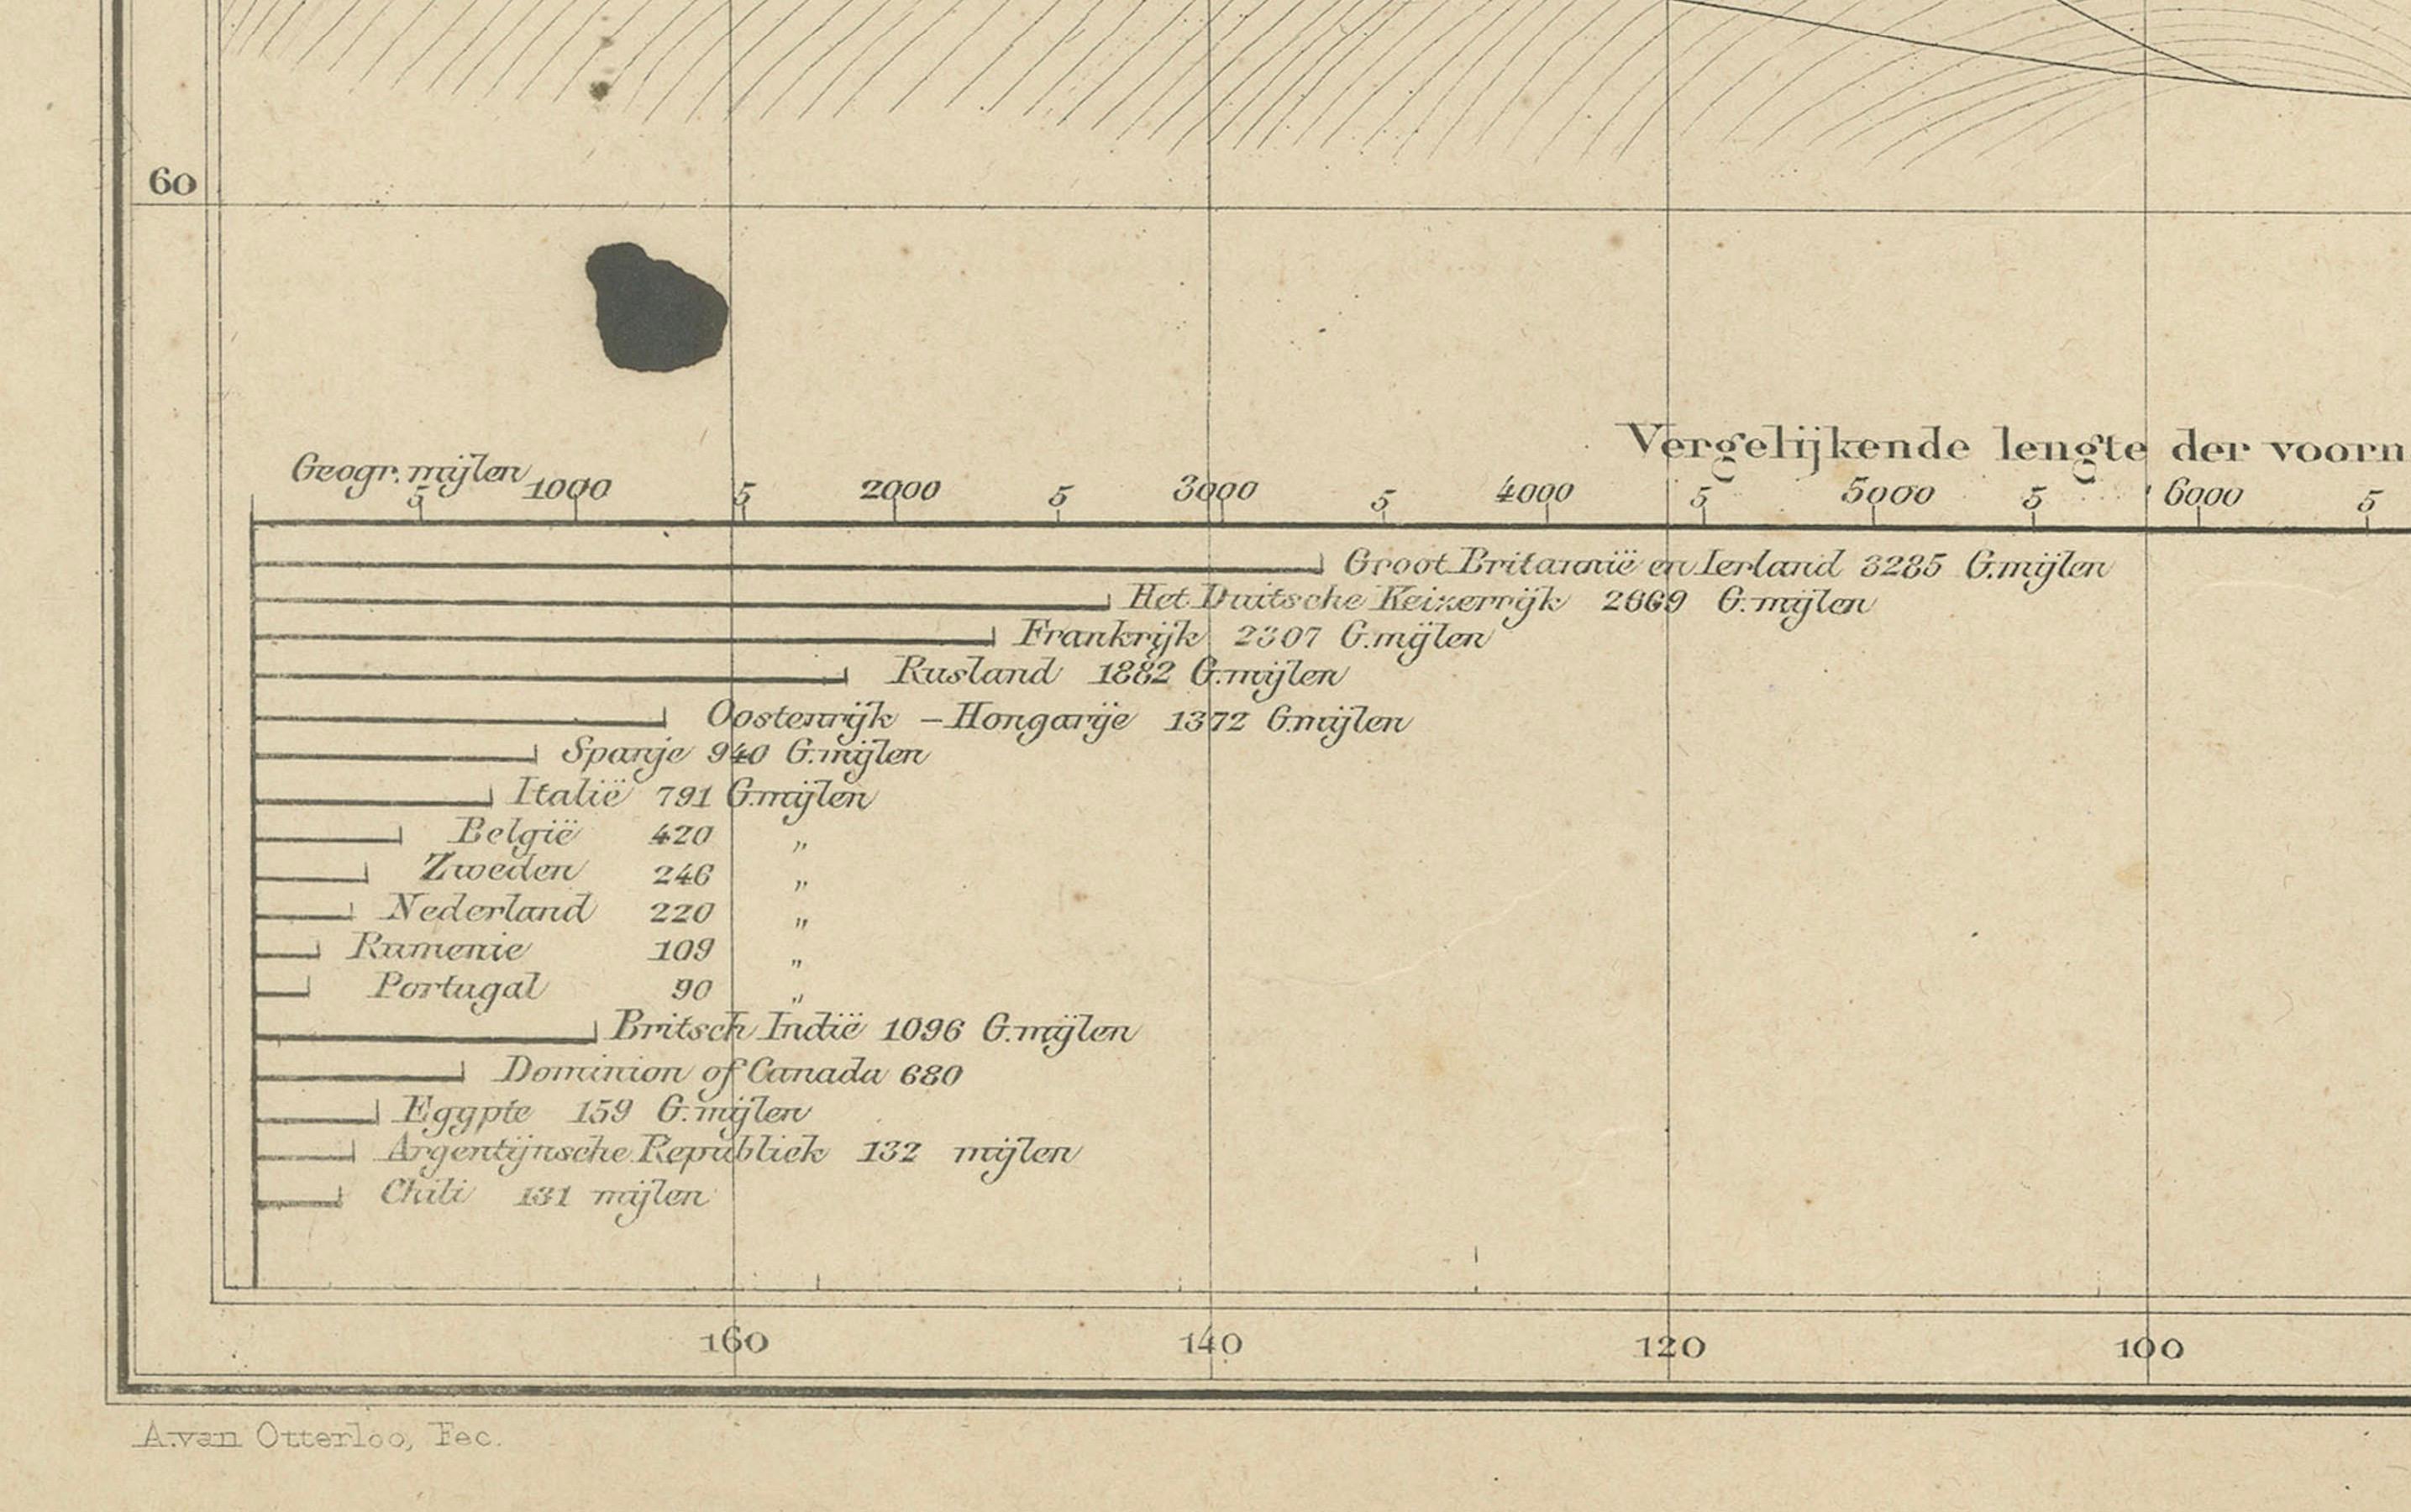 60
Vergelijkende lengte der voorn
Geogr. mijlen
5 1000 5 2000 5 3000 5 4000 5 5000 5 6000 5
Groot Britannië en Ierland 3285 G.mijlen
Het Duitsche Keizerrijk 2669 G.mijlen
Frankrijk 2307 G.mijlen
Rusland 1882 G.mijlen
Oostenrijk – Hongarije 1372 G.mijlen
Spanje 940 G.mijlen
Italië 791 G.mijlen
België 420 „
Zweden 246 „
Nederland 220 „
Rumenie 109 „
Portugal 90 „
Britsch Indië 1096 G.mijlen
Dominion of Canada 680
Egypte 159 G.mijlen
Argentijnsche Republiek 132 mijlen
Chili 131 mijlen
160 140 120 100
A.van Otterloo, Fec.